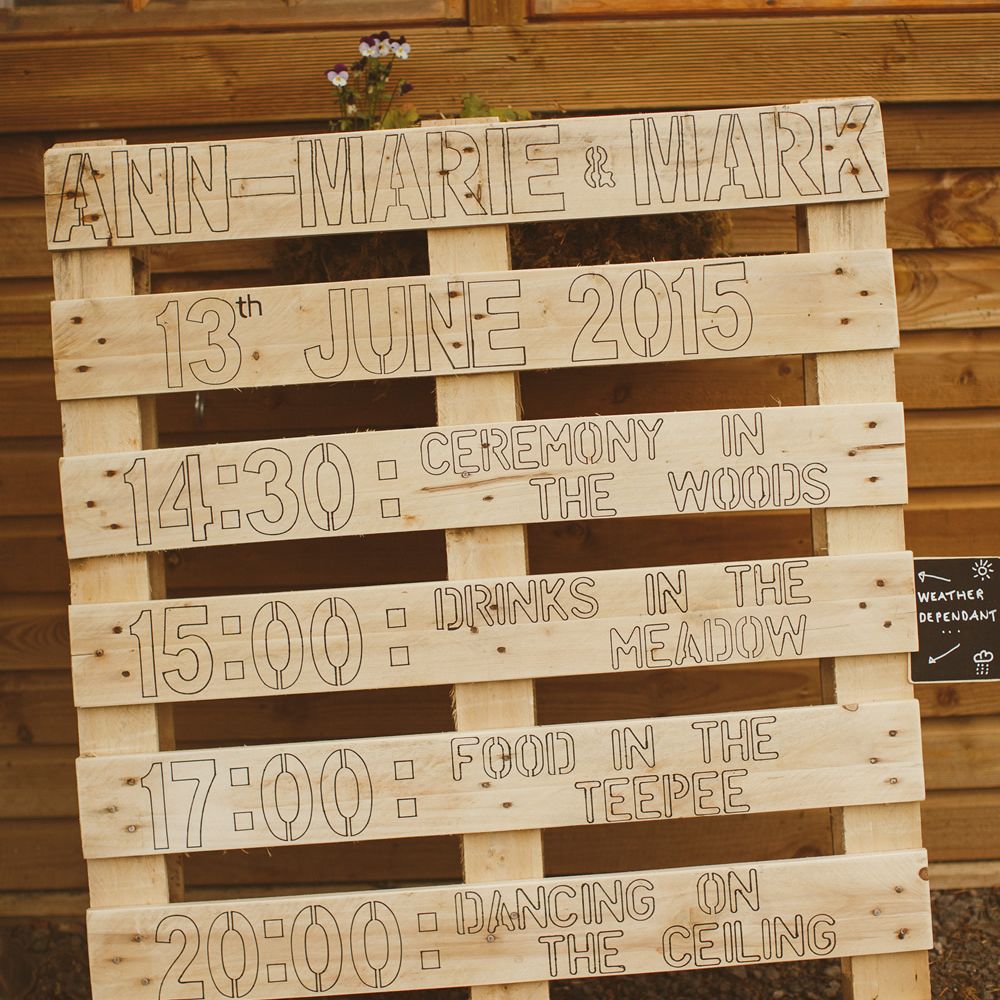 ANN-MARIE & MARK
13th JUNE 2015
14:30 : CEREMONY IN
THE WOODS
15:00 : DRINKS IN THE
MEADOW
WEATHER
DEPENDANT
...
17:00 : FOOD IN THE
TEEPEE
20:00 : DANCING ON
THE CEILING